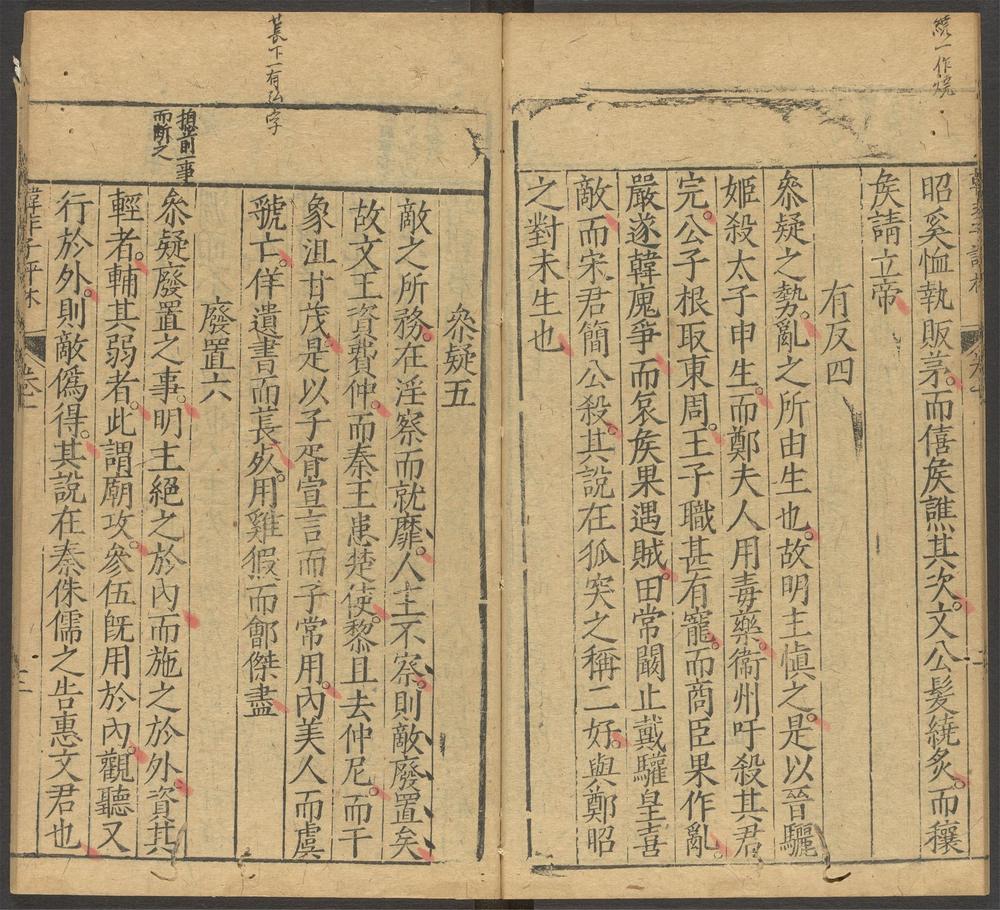 繞一作燒
昭奚恤執販茅。而僖矦譙其次。文公髮繞炙。而穰
矦請立帝
有反四
叅疑之勢。亂之所由生也。故明主愼之。是以晉驪
姬殺太子申生。而鄭夫人用毒藥。衞州吁殺其君
完。公子根取東周。王子職甚有寵。而商臣果作亂。
嚴遂韓廆爭。而哀矦果遇賊。田常闞止戴驩皇喜
敵。而宋君簡公殺。其說在狐突之稱二好。與鄭昭
之對未生也
萇下一有弘字
叅疑五
敵之所務。在淫察而就靡。人主不察。則敵廢置矣
故文王資費仲。而秦王患楚使。黎且去仲尼。而干
象沮甘茂。是以子胥宣言而子常用。內美人而虞
虢亡。佯遺書而萇㢤。用雞猳而鄶傑盡
廢置六
揔前一事
而斷之
叅疑廢置之事。明主絕之於內。而施之於外。資其
輕者。輔其弱者。此謂廟攻。參伍旣用於內。觀聽又
行於外。則敵僞得。其說在秦侏儒之告惠文君也
韓非子評林 卷一